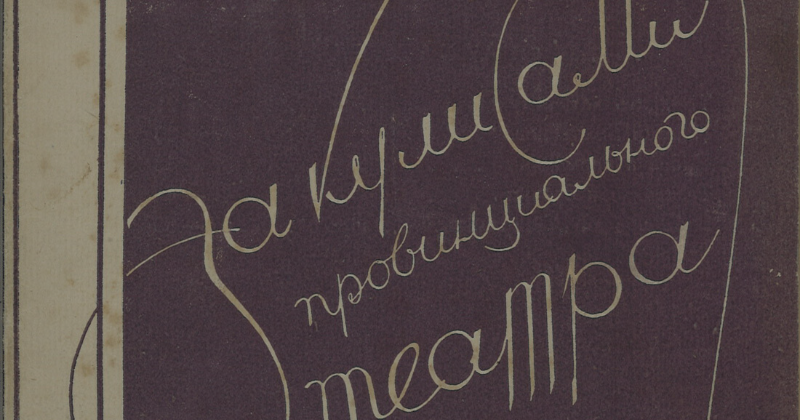 За кулисами
провинциального
театра